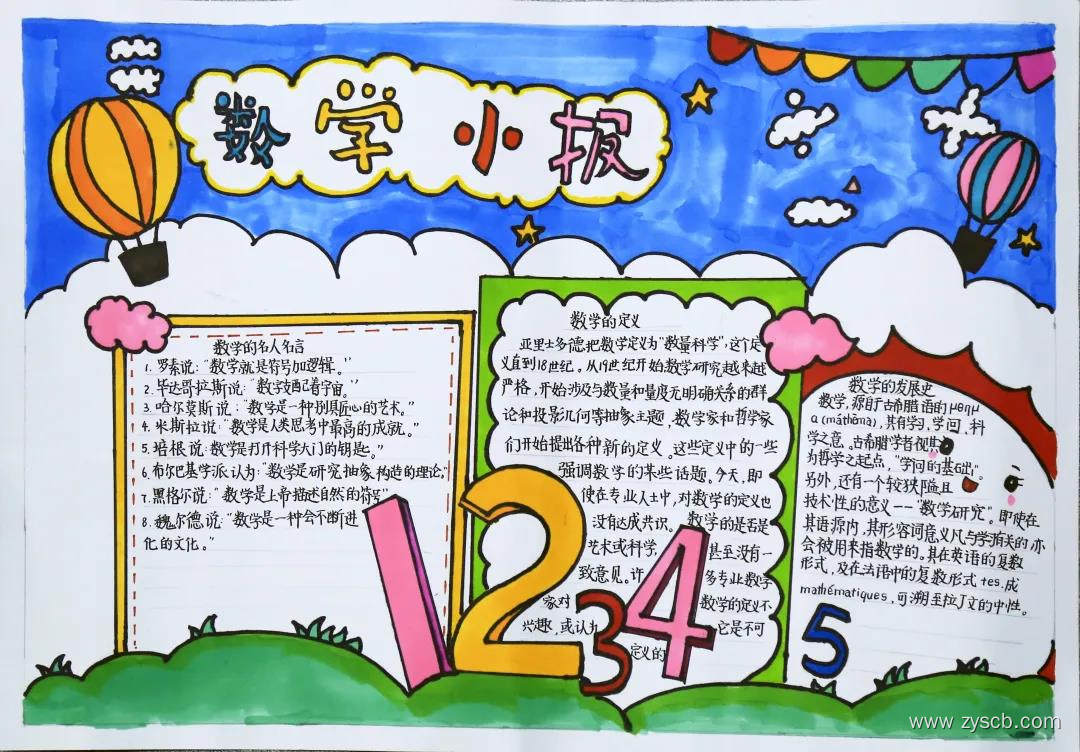 数学小报
数学的名人名言
1. 罗素说："数学就是符号加逻辑。"
2. 毕达哥拉斯说："数字支配着宇宙。"
3. 哈尔莫斯说："数学是一种别具匠心的艺术。"
4. 米斯拉说："数学是人类思考中最高的成就。"
5. 培根说：数学是打开科学大门的钥匙。"
6. 布尔巴基学派认为："数学是研究抽象构造的理论。"
7. 黑格尔说："数学是上帝描述自然的符号"
8. 魏尔德说："数学是一种会不断进
化的文化。"
数学的定义
亚里士多德把数学定义为"数量科学"，这个定
义直到18世纪。从19世纪开始数学研究越来越
严格，开始涉及与数量和量度无明确关系的群
论和投影几何等抽象主题，数学家和哲学家
们开始提出各种新的定义。这些定义中的一些
强调数学的某些话题。今天，即
使在专业人士中，对数学的定义也
没有达成共识。数学的是否是
艺术或科学，甚至没有一
致意见。许多专业数学
家对数学的定义不
兴趣，或认为它是不可
定义的
数学的发展史
数学，源自于古希腊语的μαθημ
α(máthēma)，其有学习、学问、科
学之意。古希腊学者视其
为哲学之起点，"学问的基础"。
另外，还有一个较狭隘且
技术性的意义——"数学研究"。即使在
其语源内，其形容词意义凡与学习有关的，亦
会被用来指数学的。其在英语的复数
形式，及在法语中的复数形式tes，成
mathématiques，可溯至拉丁文的中性。
1 2 3 4 5
www.zyscb.com